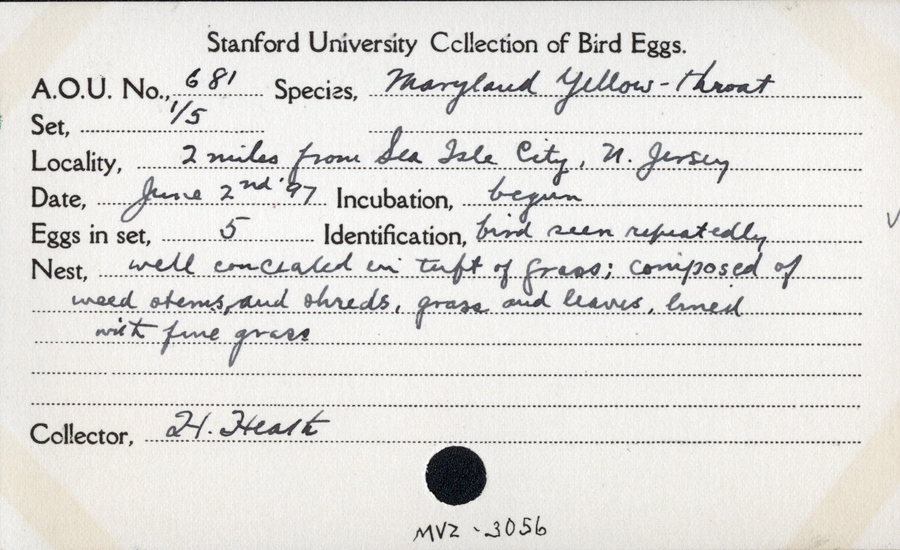 Stanford University Collection of Bird Eggs.
A.O.U. No., 681 Species, Maryland Yellow-throat
Set, 1/5
Locality, 2 miles from Sea Isle City, N. Jersey
Date, June 2nd '97 Incubation, begun
Eggs in set, 5 Identification, bird seen repeatedly
Nest, well concealed in tuft of grass; composed of
weed stems, and shreds, grass and leaves, lined
with fine grass
Collector, H. Heath
MVZ - 3056